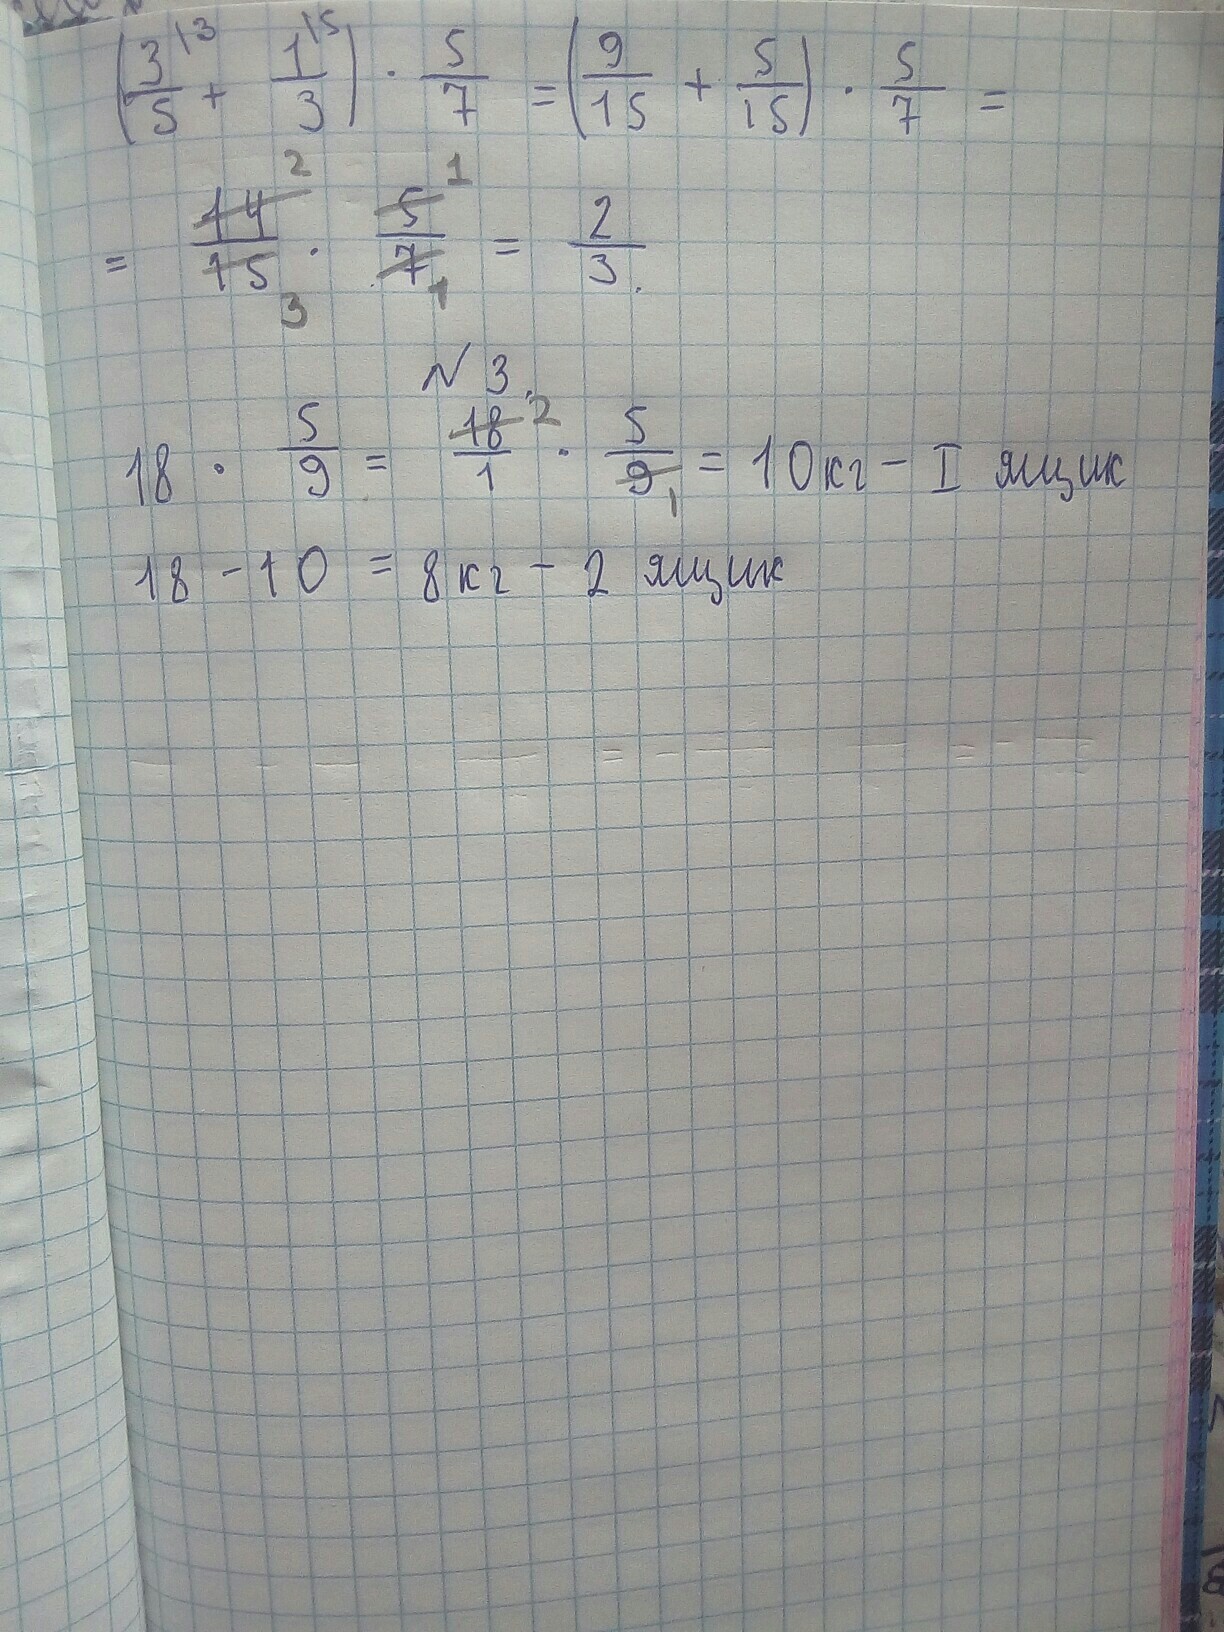 (3/5 |3 + 1/3 |5) · 5/7 = (9/15 + 5/15) · 5/7 =
= 14/15 2 3 · 5/7 1 1 = 2/3.
N 3.
18 · 5/9 = 18/1 2 · 5/9 1 = 10кг - I ящик
18 - 10 = 8кг - 2 ящик